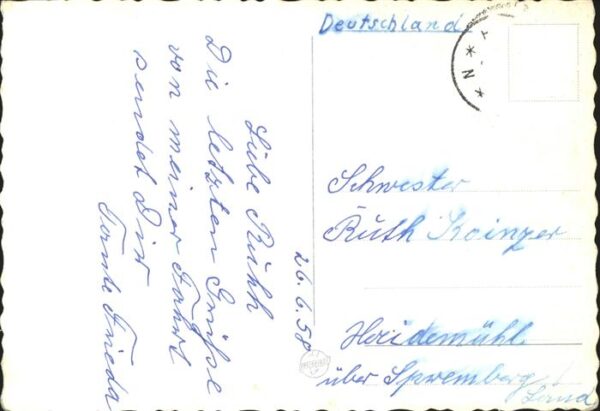 Deutschland
26. 6. 58
Liebe Ruth
Die letzten Grüße
von meiner Fahrt
sendet Dir
Tante Frieda
Schwester
Ruth Koinzer
Heidemühl
über Spremberg
Land
* N *